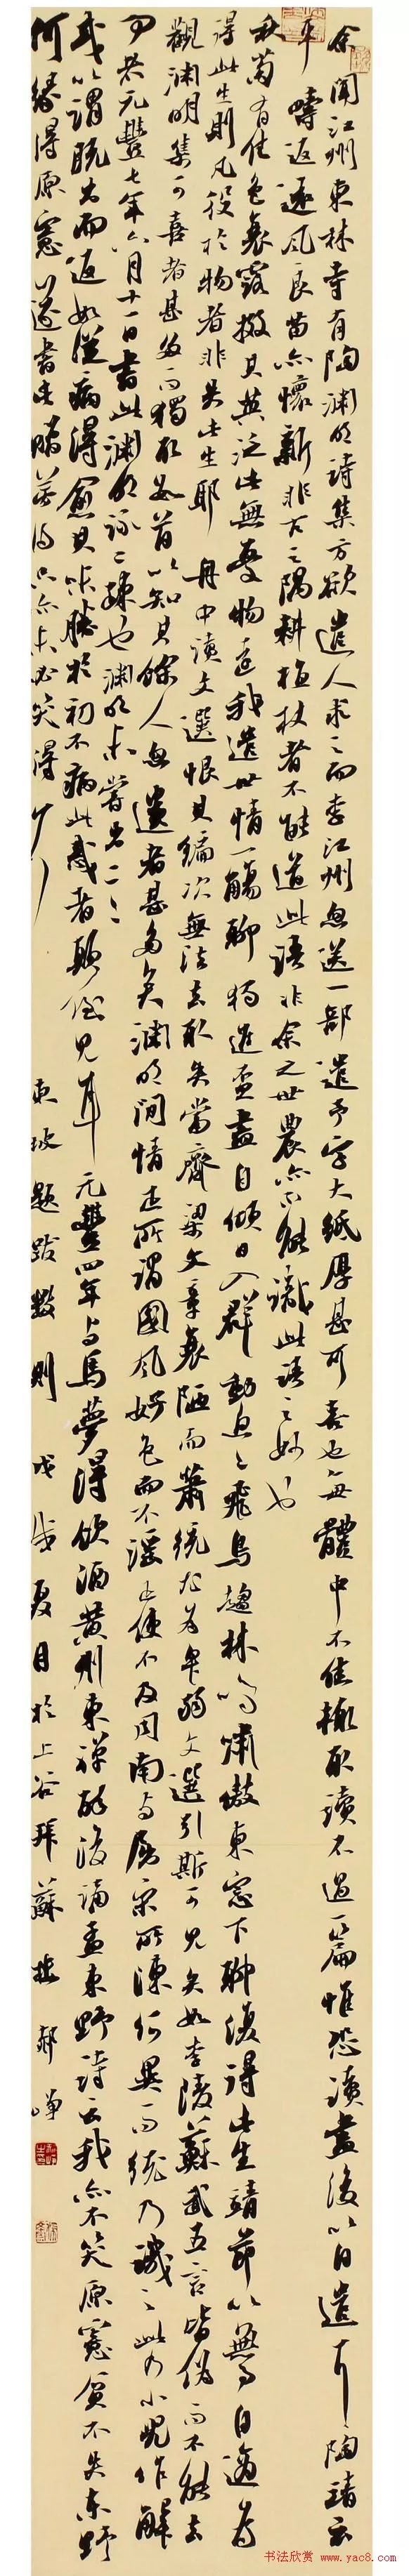 余闻江州東林寺有陶渊明詩集方欲遣人求之而李江州忽送一部遺予字大紙厚甚可喜也每體中不佳輒取讀不過一篇惟恐讀盡後以自遣耳陶靖云
平疇返遠風良苗亦懷新非古之隅耕植杖者不能道此語非余之世農亦不能識此語之妙也
秋菊有佳色裛露掇其英泛此無憂物遠我遺世情一觴聊獨進盃盡自傾日入群動息飛鳥趨林鳴嘯傲東窓下聊復得此生靖節以無事自適為
得此生則凡役於物者非失此生耶 舟中讀文選恨其編次無法去取失當齊梁文章衰陋而蕭統尤為卑弱文選引斯可見矣如李陵蘇武五言皆偽而不能去
觀渊明集可喜者甚多而獨取數首以知其餘人忽遺者甚多矣渊明閒情正所謂國風好色而不淫正使不及周南与屈宋所陳何異而統乃譏之此乃小兒作解
事者元豐七年六月十一日書此渊明詠二疎也渊明未嘗出二二
或以謂既出而返如從病得愈其味勝於初不病此惑者顛倒見耳 元豐四年与馬夢得飲酒黄州東禪醉後誦孟東野詩云我亦不笑原憲貧不失東野
何緣得原憲遂書此贈夢得只亦未必笑得 東坡題跋數則 戊戌夏日於上谷拜蘇樓 郝嶂
书法欣赏 www.yac8.com